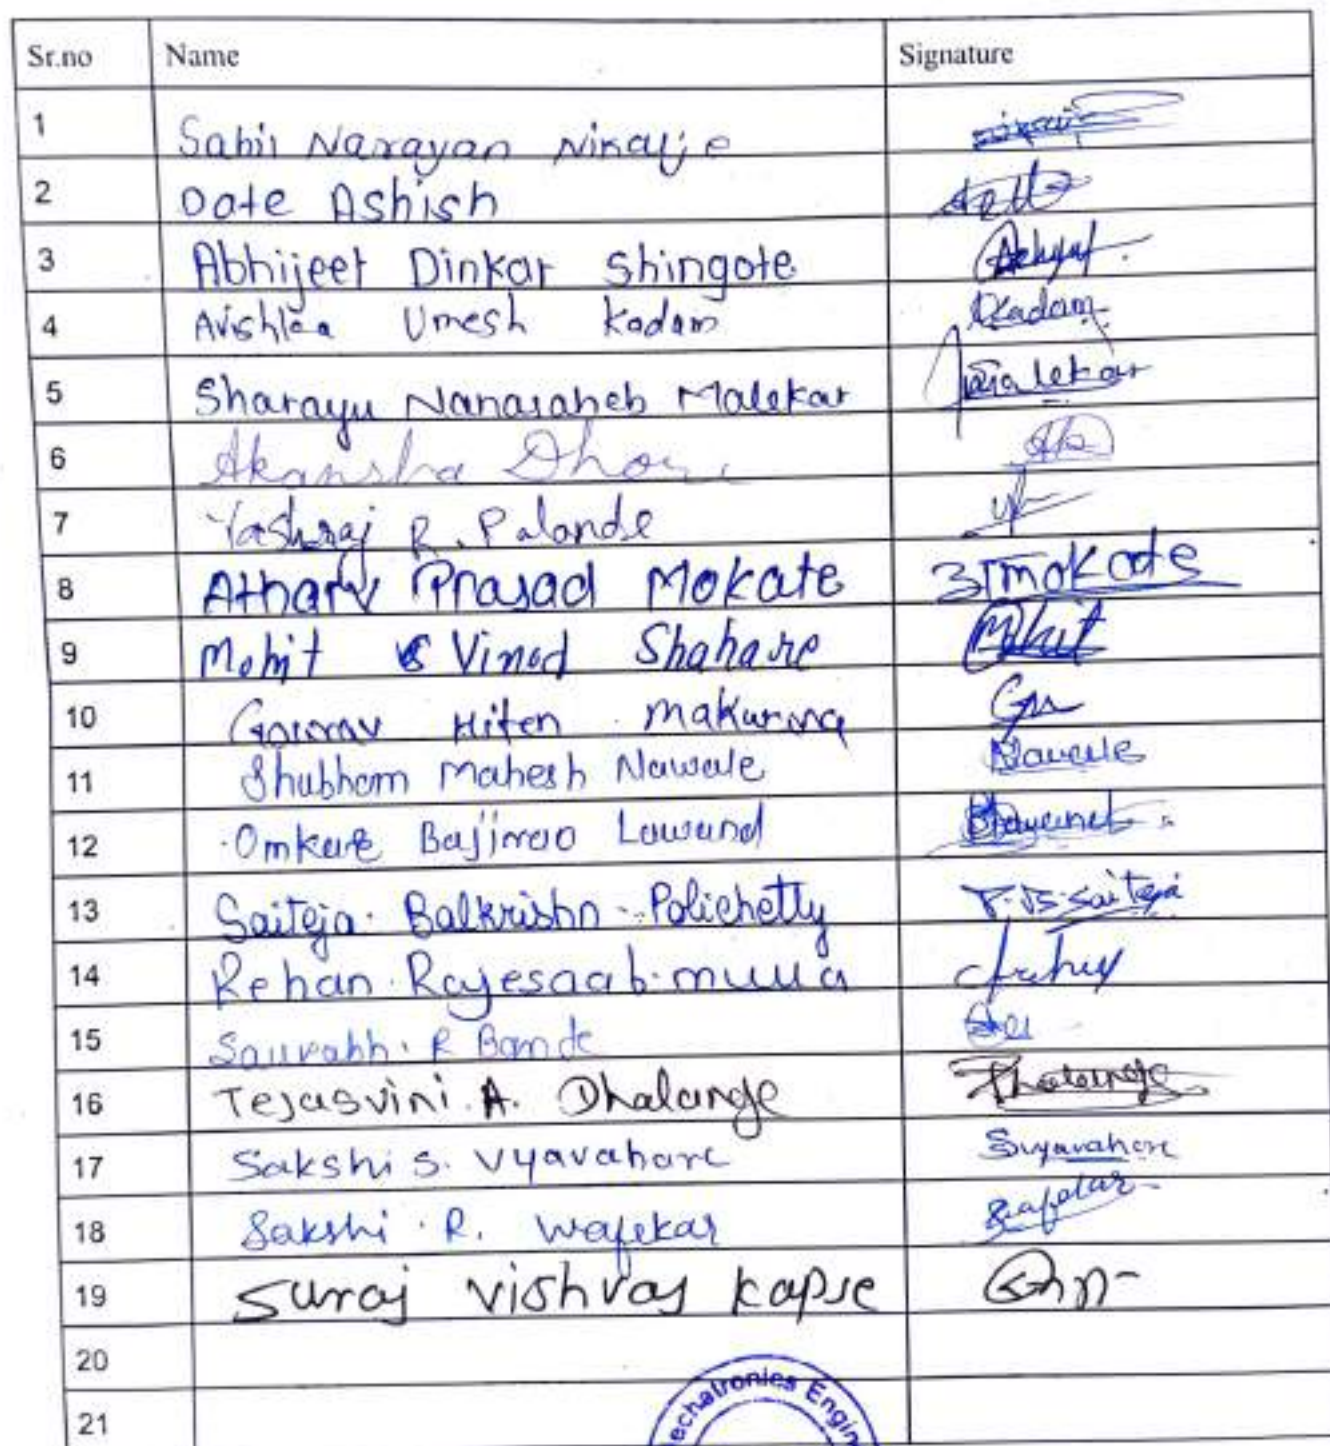 Sr.no Name Signature
1 Sahil Narayan Nikalje
2 Date Ashish
3 Abhijeet Dinkar Shingote
4 Avishkaa Umesh Kadam Kadam
5 Sharayu Nanasaheb Malekar Malekar
6 Akansha
7 Yashraj R. Palande
8 Atharv Prasad Mokate Mokate
9 Mohit Vinod Shahare Mohit
10 Hiten Makwana
11 Shubham Mahesh Nawale Nawale
12 Omkar Bajirao Lawand
13 Saiteja Balkrishn Polichetty P.B.Saiteja
14 Rehan Rajesaab mulla
15 Saurabh. R Bomde
16 Tejasvini A. Dhalange Dhalange
17 Sakshi S. Vyavahare Svyavahare
18 Sakshi R. Wafekar
19 Suraj Vishvas Kapse
20
21
echatronics Engin